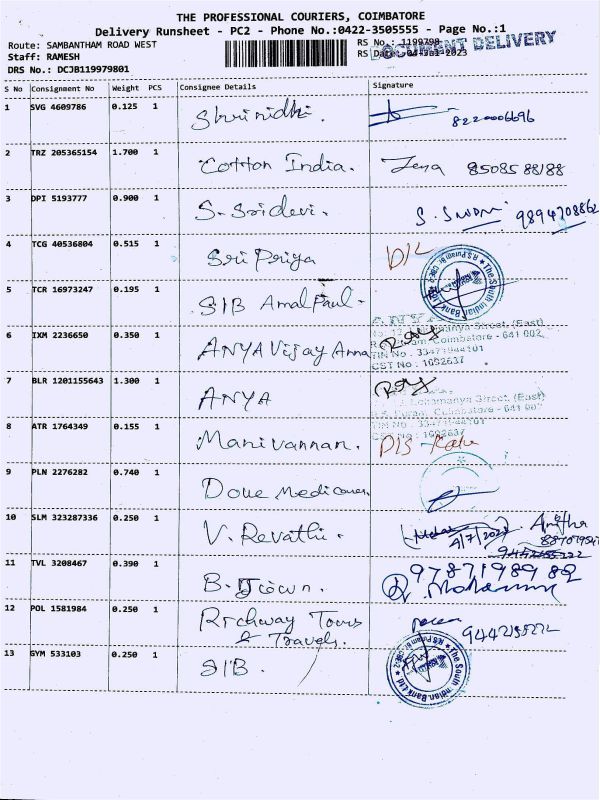 THE PROFESSIONAL COURIERS, COIMBATORE
Delivery Runsheet - PC2 - Phone No.:0422-3505555 - Page No.:1
Route: SAMBANTHAM ROAD WEST
RS No.: 1199798
DOCUMENT DELIVERY
Staff: RAMESH
RS Date: 04-Jul-2023
DRS No.: DCJB119979801
S No Consignment No Weight PCS Consignee Details Signature
1 SVG 4609786 0.125 1 Shrinidhi. 8220006696
2 TRZ 205365154 1.700 1 Cotton India. Jeya 8508588188
3 DPI 5193777 0.900 1 S. Sridevi. 9894708862
4 TCG 40536804 0.515 1 Sri Priya
The South Indian Bank Ltd
5 TCR 16973247 0.195 1 SIB Amal Paul.
Lokamanya Street, (East)
Coimbatore - 641 002
6 IXM 2236650 0.350 1 ANYA Vijay Anna
TIN No : 33471944101
CST No : 1092637
7 BLR 1201155643 1.300 1 ANYA
Lokamanya Street, (East)
R.S. Puram, Coimbatore - 641 002
8 ATR 1764349 0.155 1 Manivannan.
9 PLN 2276282 0.740 1
10 SLM 323287336 0.250 1 V. Revathi.
4/7/2023
11 TVL 3208467 0.390 1 9787198982
12 POL 1581984 0.250 1 Rrchway Tours
& Travels.
13 GYM 533103 0.250 1 SIB.
The South Indian Bank Ltd